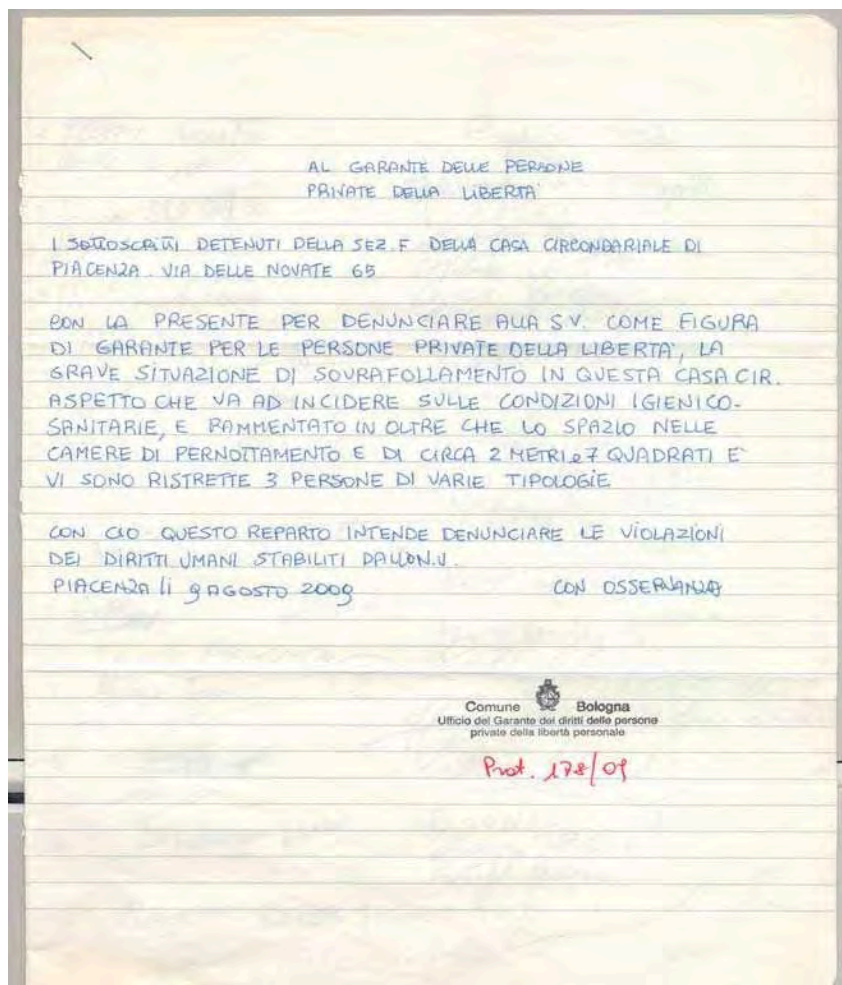 AL GARANTE DELLE PERSONE
PRIVATE DELLA LIBERTA'
I SOTTOSCRITTI DETENUTI DELLA SEZ. F DELLA CASA CIRCONDARIALE DI
PIACENZA. VIA DELLE NOVATE 65
CON LA PRESENTE PER DENUNCIARE ALLA S.V. COME FIGURA
DI GARANTE PER LE PERSONE PRIVATE DELLA LIBERTA', LA
GRAVE SITUAZIONE DI SOVRAFOLLAMENTO IN QUESTA CASA CIR.
ASPETTO CHE VA AD INCIDERE SULLE CONDIZIONI IGIENICO-
SANITARIE, E RAMMENTATO IN OLTRE CHE LO SPAZIO NELLE
CAMERE DI PERNOTTAMENTO E DI CIRCA 2 METRI e 7 QUADRATI E
VI SONO RISTRETTE 3 PERSONE DI VARIE TIPOLOGIE
CON CIO QUESTO REPARTO INTENDE DENUNCIARE LE VIOLAZIONI
DEI DIRITTI UMANI STABILITI DALL'O.N.U.
PIACENZA lì 9 AGOSTO 2009 CON OSSERVANZA
Comune Bologna
Ufficio del Garante dei diritti delle persone
private della libertà personale
Prot. 178/09